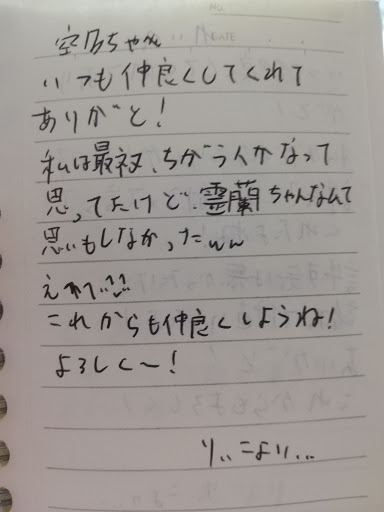 ちゃん
いつも仲良くしてくれて
ありがと!
私は最初、ちがう人かなって
思ってたけど霊蘭ちゃんなんて
思いもしなかったww
これからも仲良くしようね!
よろしく〜!
より...